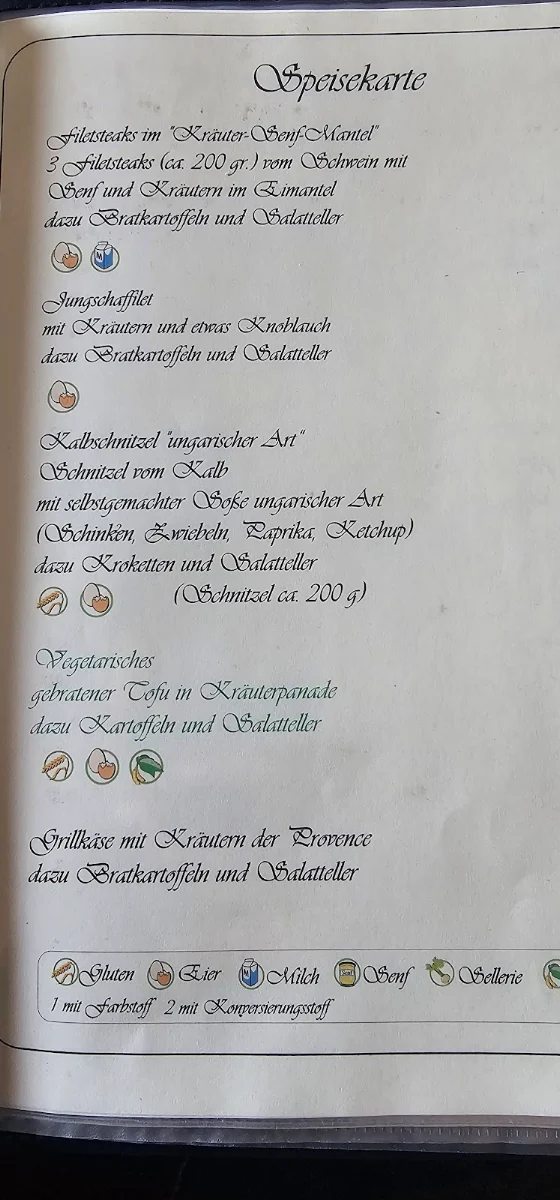 Speisekarte
Filetsteaks im "Kräuter-Senf-Mantel"
3 Filetsteaks (ca. 200 gr.) vom Schwein mit
Senf und Kräutern im Eimantel
dazu Bratkartoffeln und Salatteller
M
Jungschaffilet
mit Kräutern und etwas Knoblauch
dazu Bratkartoffeln und Salatteller
Kalbschnitzel "ungarischer Art"
Schnitzel vom Kalb
mit selbstgemachter Soße ungarischer Art
(Schinken, Zwiebeln, Paprika, Ketchup)
dazu Kroketten und Salatteller
(Schnitzel ca. 200 g)
Vegetarisches
gebratener Tofu in Kräuterpanade
dazu Kartoffeln und Salatteller
Grillkäse mit Kräutern der Provence
dazu Bratkartoffeln und Salatteller
Gluten Eier M Milch Senf Sellerie
1 mit Farbstoff 2 mit Konversierungsstoff